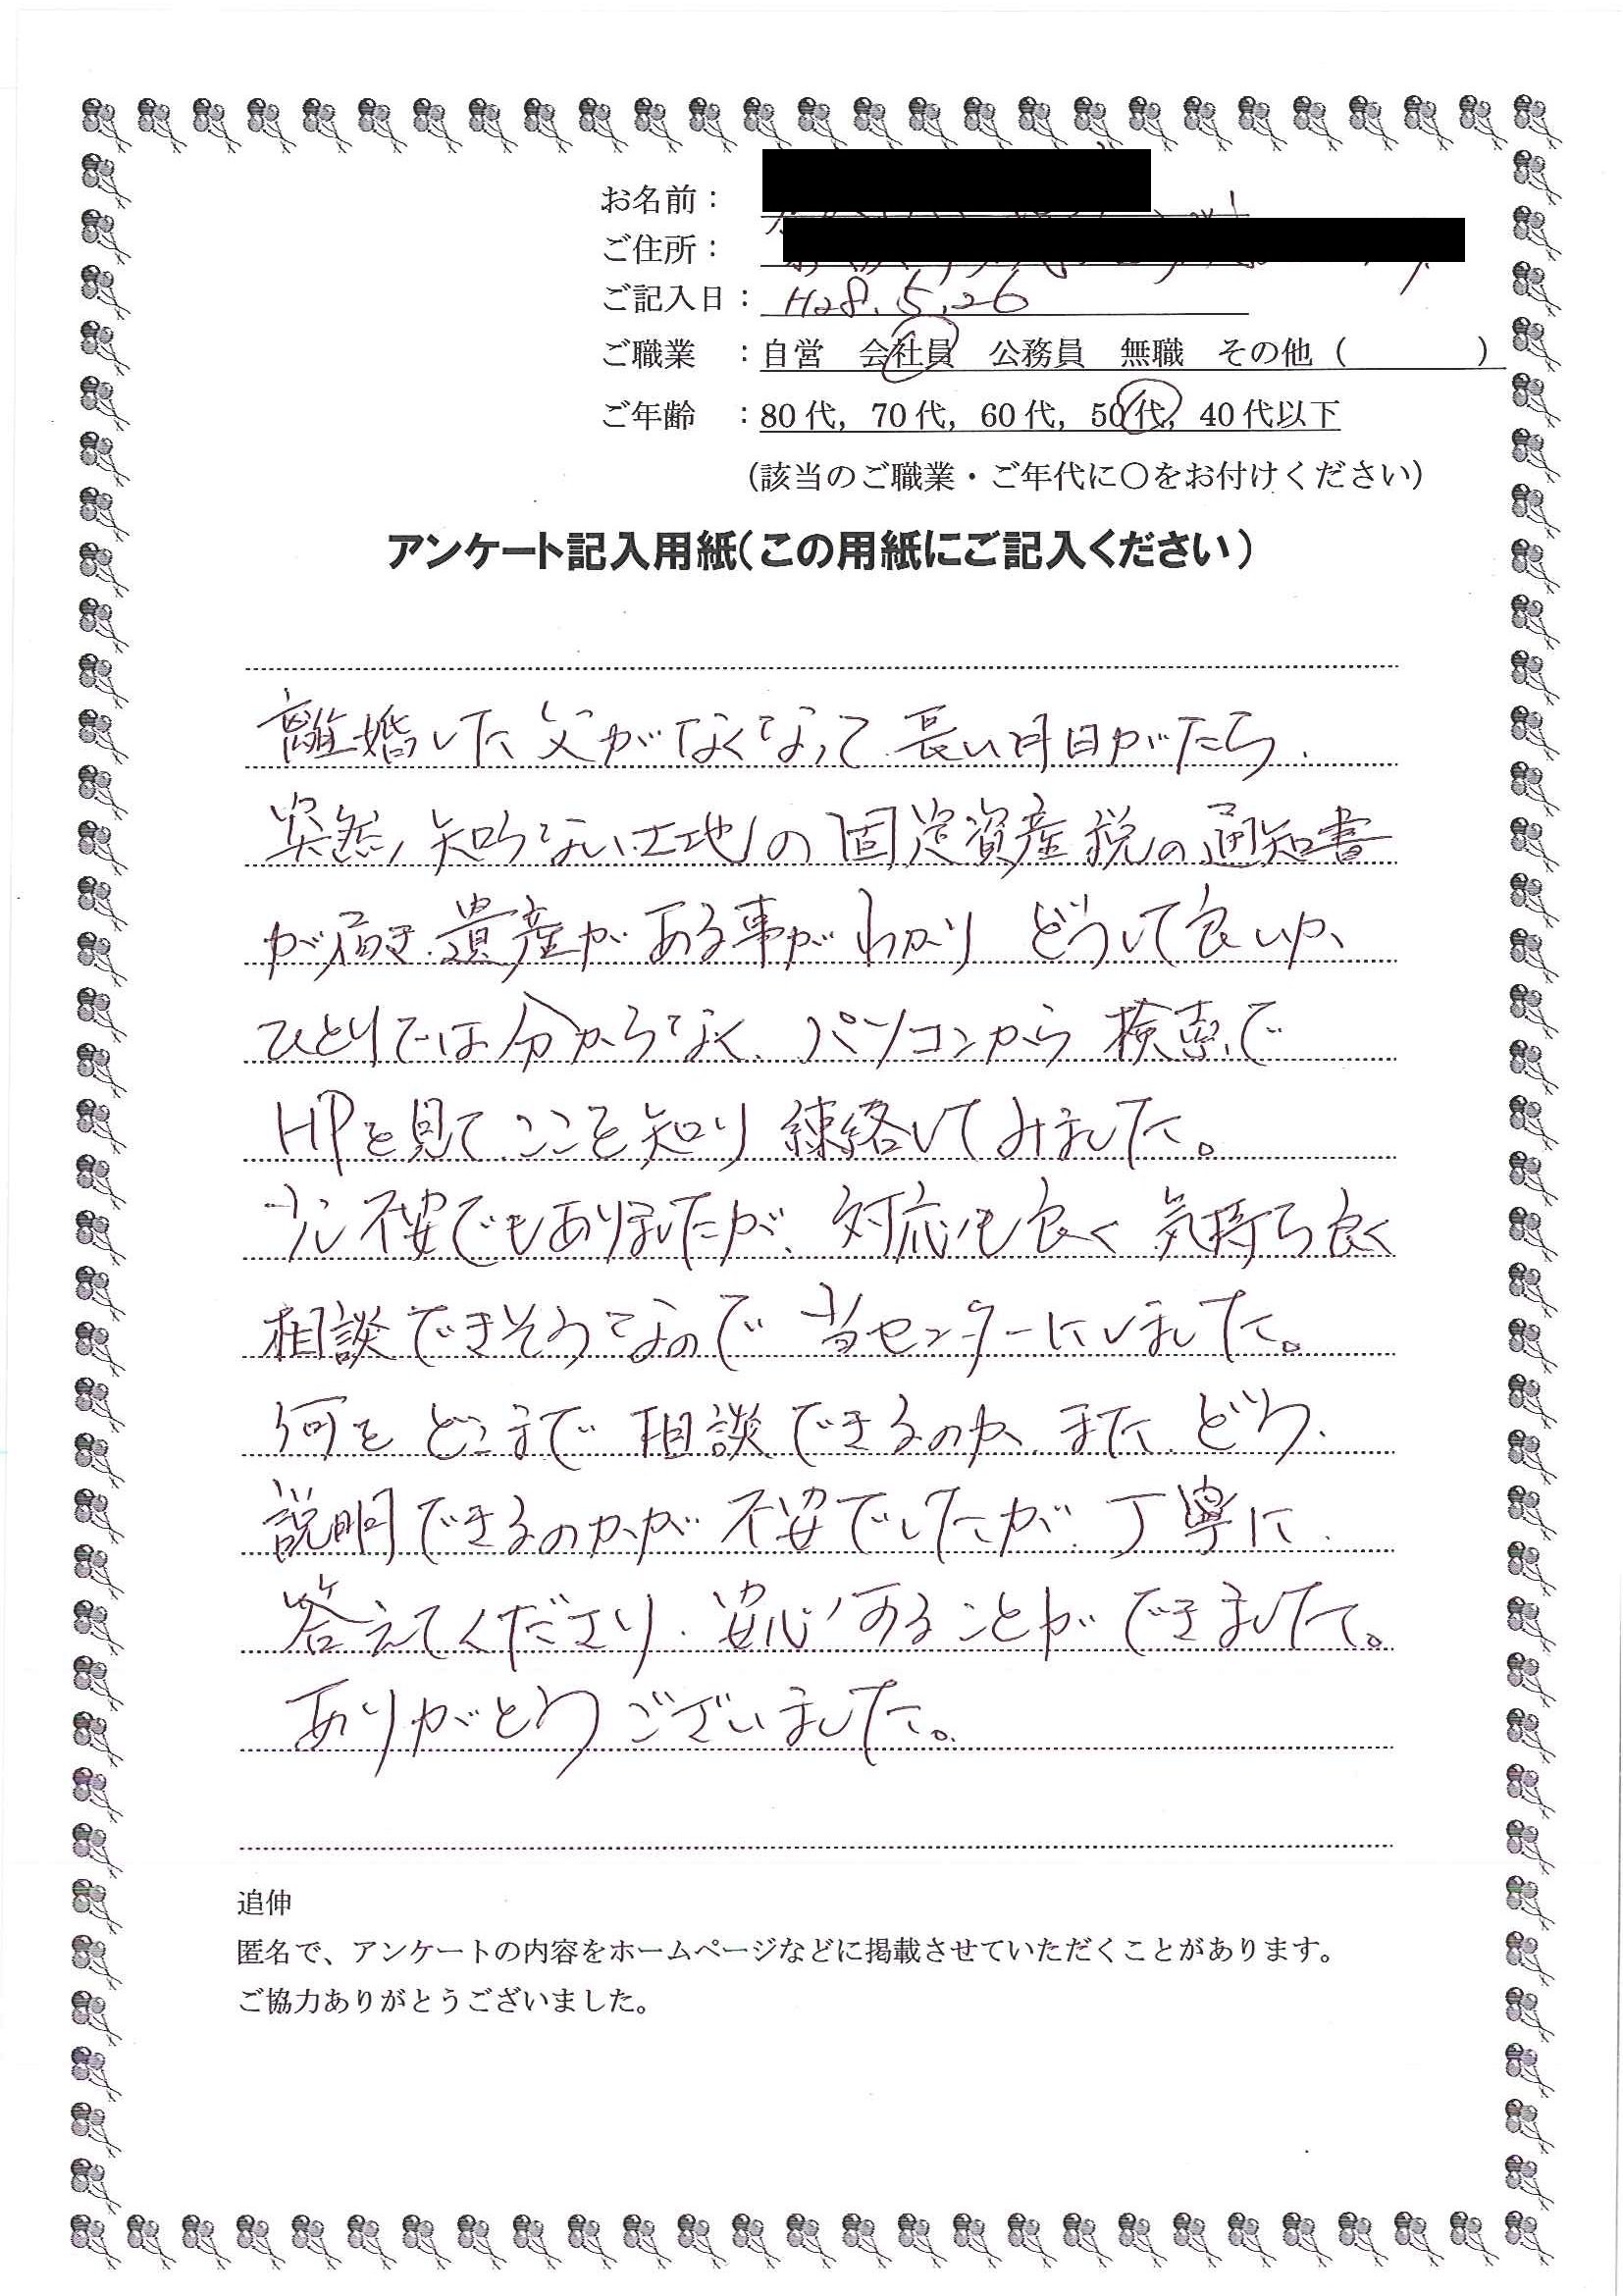 お名前：
ご住所：
ご記入日： H28.5.26
ご職業 ：自営 会社員 公務員 無職 その他（ ）
ご年齢 ：80代，70代，60代，50代，40代以下
（該当のご職業・ご年代に〇をお付けください）
アンケート記入用紙（この用紙にご記入ください）
離婚した父がなくなって長い月日がたち、
突然、知らない土地の固定資産税の通知書
が届き、遺産がある事がわかり どうして良いか、
ひとりでは分からなく、パソコンから検索で
HPを見て、ここを知り 練絡してみました。
少し不安でもありましたが、対応も良く 気持ち良く
相談できそうなので 当センターにしました。
何をどこまで 相談できるのか、また、どう、
説明できるのかが 不安でしたが、丁寧に、
答えてくださり、安心することができました。
ありがとうございました。
追伸
匿名で、アンケートの内容をホームページなどに掲載させていただくことがあります。
ご協力ありがとうございました。